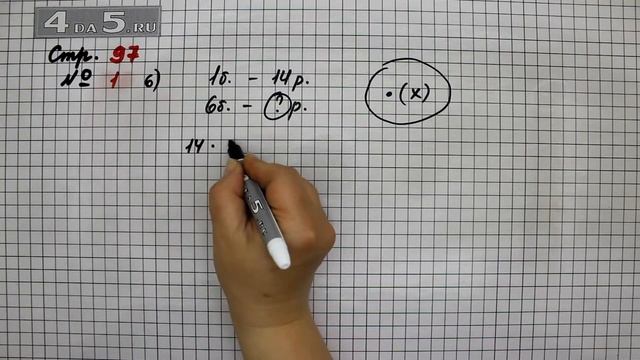 4 DA 5.RU
Стр. 97
№ 1 б)
1б. – 14 р.
6б. – ? р.
• (x)
14 ·
5